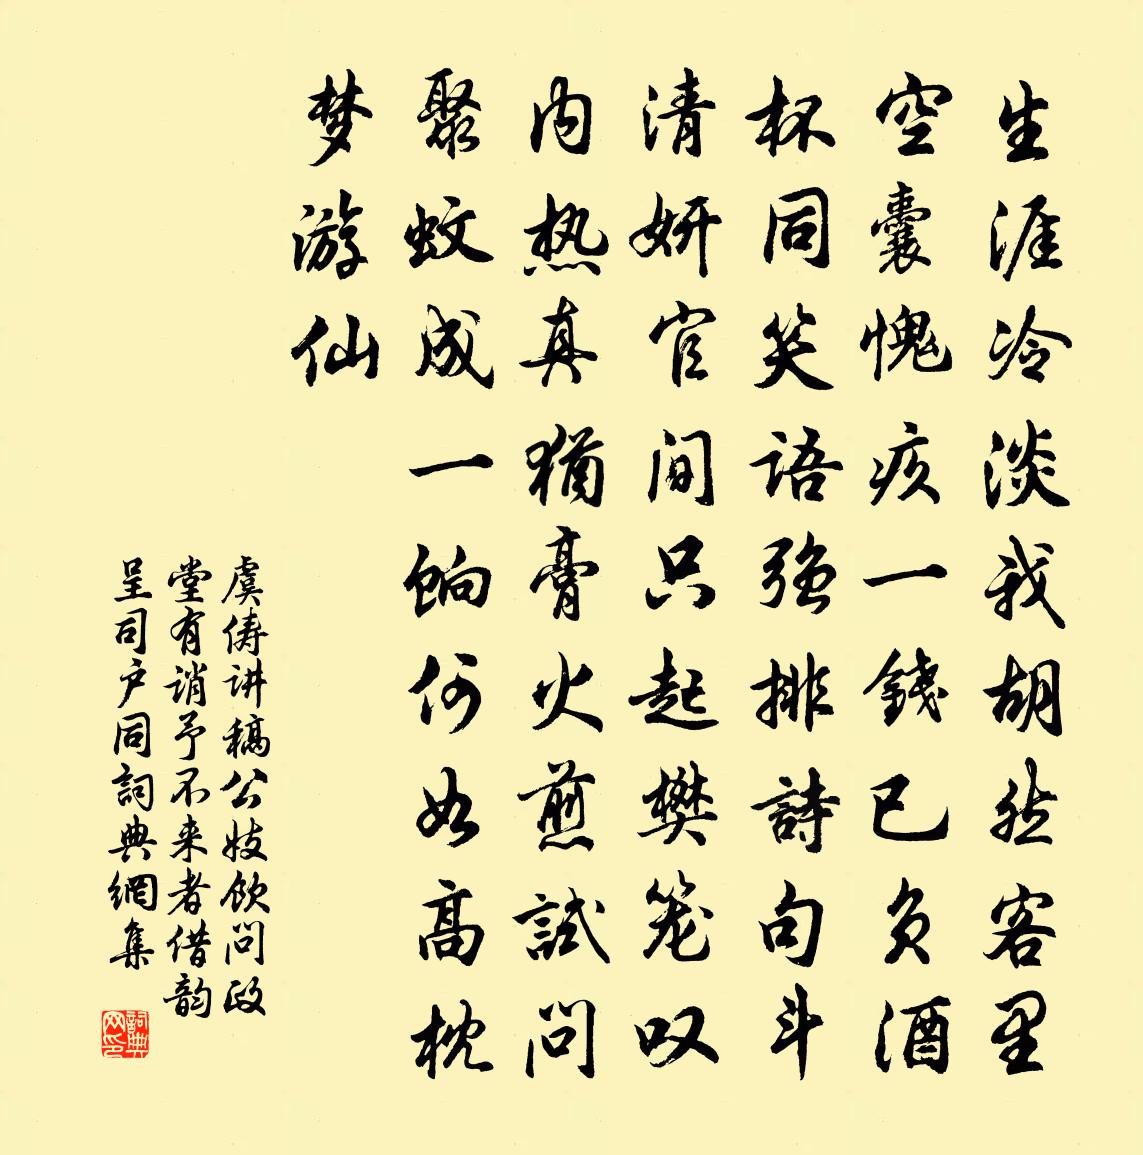 生涯冷淡我胡然客里
空囊愧疚一錢已负酒
杯同笑語強排詩句斗
清妍官间只起樊笼叹
内热真犹膏火煎試问
聚蚊成一饷何如高枕
梦游仙
虞俦讲稿公妓饮问政
堂有誚予不来者借韵
呈司户同詞典網集
詞典网印